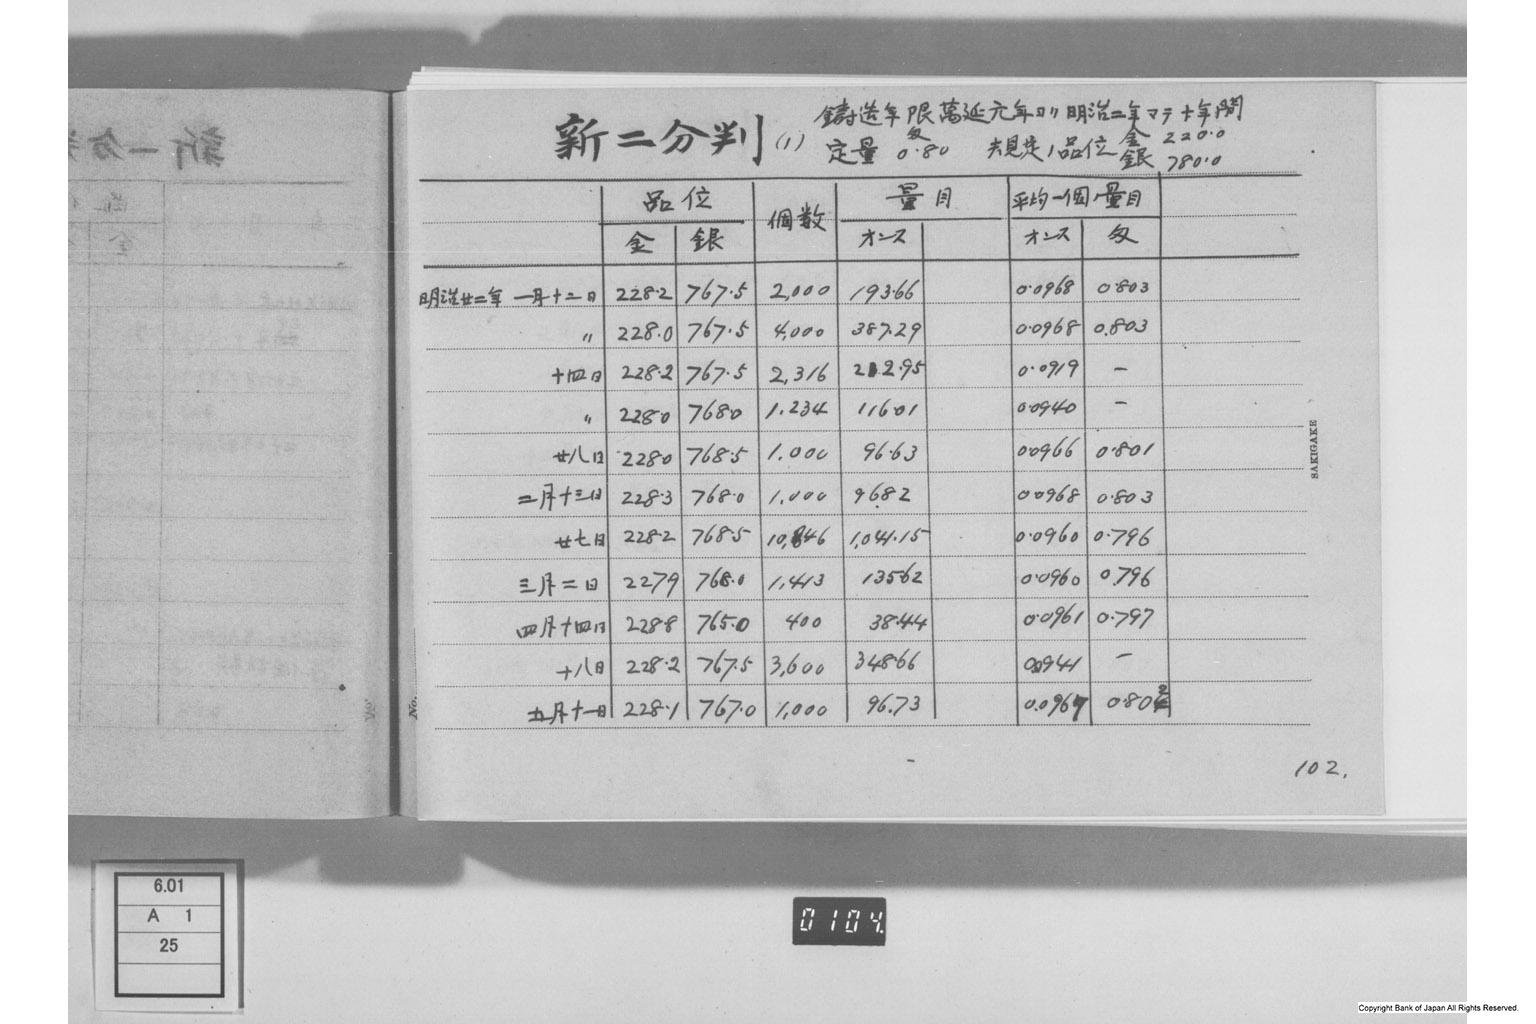 新二分判 (1)
鋳造年限萬延元年ヨリ明治二年マテ十年間
定量 匁 0.80 規定ノ品位 金 220.0 銀 780.0
品位 個数 量目 平均一個ノ量目
金 銀 オンス オンス 匁
明治廿二年 一月十二日 228.2 767.5 2,000 193.66 0.0968 0.803
〃 228.0 767.5 4,000 387.29 0.0968 0.803
十四日 228.2 767.5 2,316 212.95 0.0919 —
〃 228.0 768.0 1.234 116.01 0.0940 —
廿八日 228.0 768.5 1.000 96.63 0.0966 0.801
二月十三日 228.3 768.0 1.000 96.82 0.0968 0.803
廿七日 228.2 768.5 10,846 1,041.15 0.0960 0.796
三月二日 227.9 768.0 1,413 135.62 0.0960 0.796
四月十四日 228.8 765.0 400 38.44 0.0961 0.797
十八日 228.2 767.5 3,600 348.66 0.0941 —
五月十一日 228.1 767.0 1,000 96.73 0.0967 0.802
SAKIGAKE
No.
102.
6.01
A 1
25
0104.
Copyright Bank of Japan All Rights Reserved.